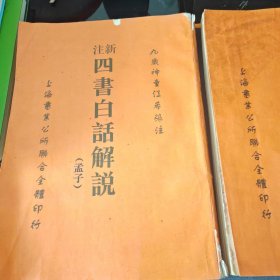 九歲神童江希張注
新注
四書白話解說
(孟子)
上海書業公所聯合全體印行
上海書業公所聯合全體印行